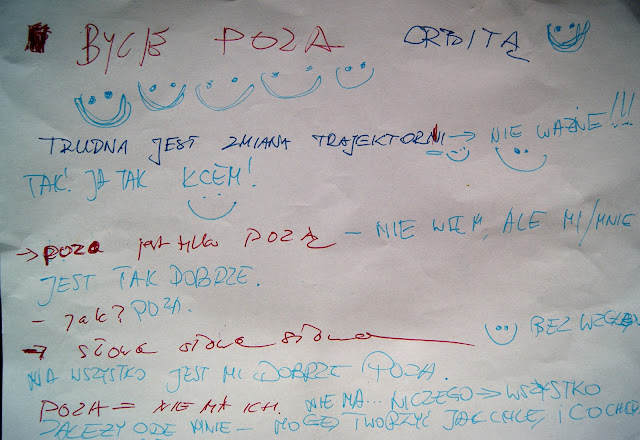 BYCIE POZA ORBITĄ
TRUDNA JEST ZMIANA TRAJEKTORII → NIE WAŻNE!!!
TAK! JA TAK KCEM!
→ poza jest tylko POZĄ – NIE WIEM, ALE MI/MNIE
JEST TAK DOBRZE.
– Jak? POZA.
→ słowa słowa słowa BEZ WZGLĘDU
NA WSZYSTKO JEST MI DOBRZE POZA.
POZA – NIE MA ICH. NIE MA... NICZEGO → WSZYSTKO
ZALEŻY ODE MNIE – MOGĘ TWORZYĆ JAK CHCĘ, I CO CHCĘ